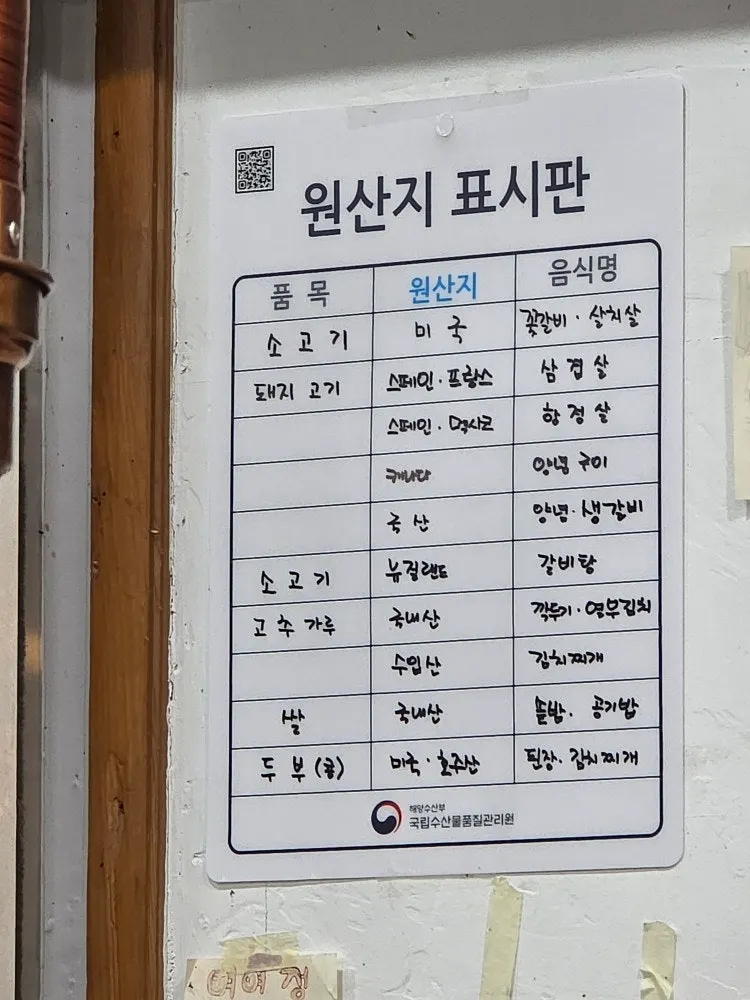 원산지 표시판
품 목 원산지 음식명
소 고 기 미 국 꽃갈비 · 살치살
돼지 고기 스페인 · 프랑스 삼 겹 살
스페인 · 멕시코 항 정 살
캐나다 양념 구이
국 산 양념 · 생갈비
소 고 기 뉴질랜드 갈비탕
고 추 가루 국내산 깍두기 · 열무김치
수입산 김치찌개
쌀 국내산 솥밥 · 공기밥
두 부 (콩) 미국 · 호주산 된장 · 김치찌개
해양수산부
국립수산물품질관리원
여여정